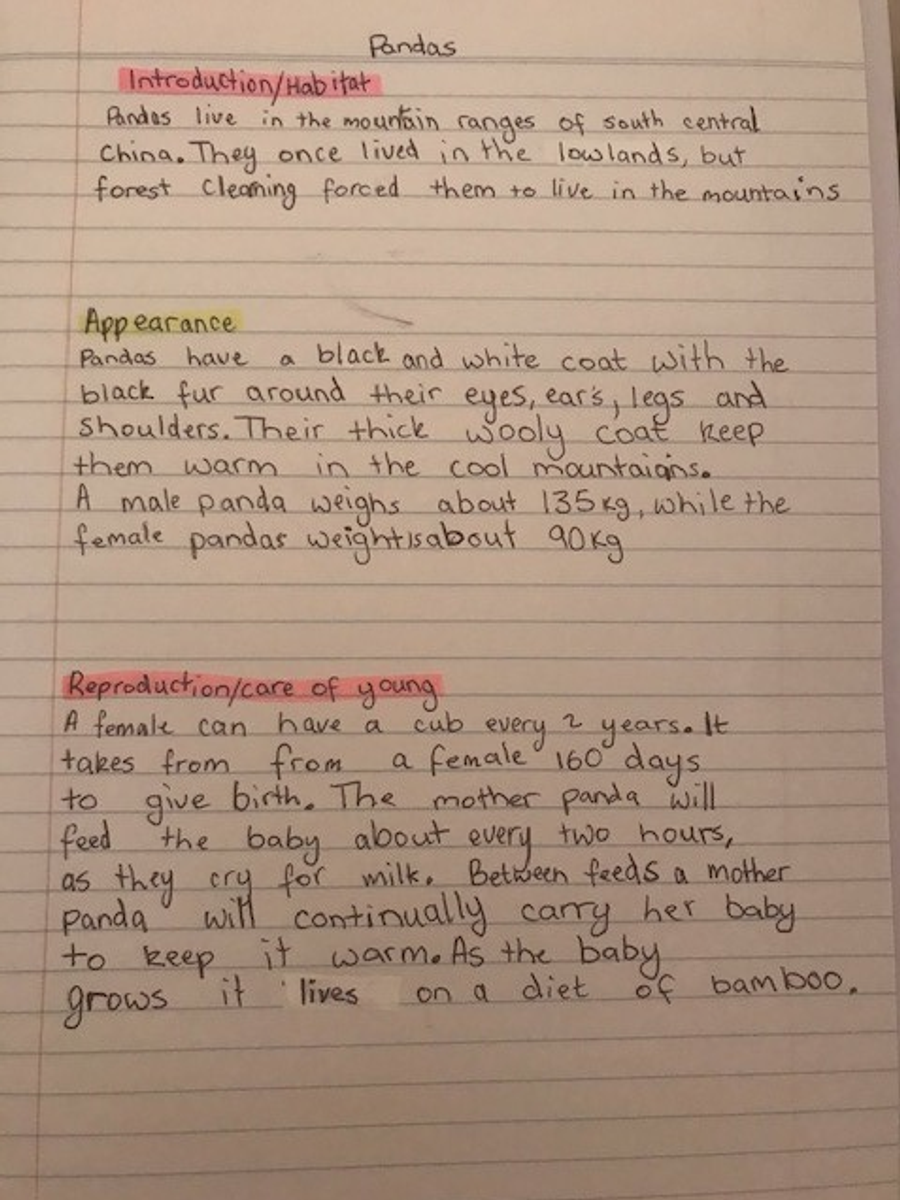 Pandas
Introduction/Habitat
Pandas live in the mountain ranges of south central
China. They once lived in the lowlands, but
forest Clearning forced them to live in the mountains
Appearance
Pandas have a black and white coat with the
black fur around their eyes, ear's, legs and
shoulders. Their thick wooly coat keep
them warm in the cool mountaigns.
A male panda weighs about 135kg, while the
female pandas weight is about 90kg
Reproduction/care of young
A female can have a cub every 2 years. It
takes from from a female 160 days
to give birth. The mother panda will
feed the baby about every two hours,
as they cry for milk. Between feeds a mother
panda will continually carry her baby
to keep it warm. As the baby
grows it lives on a diet of bamboo.